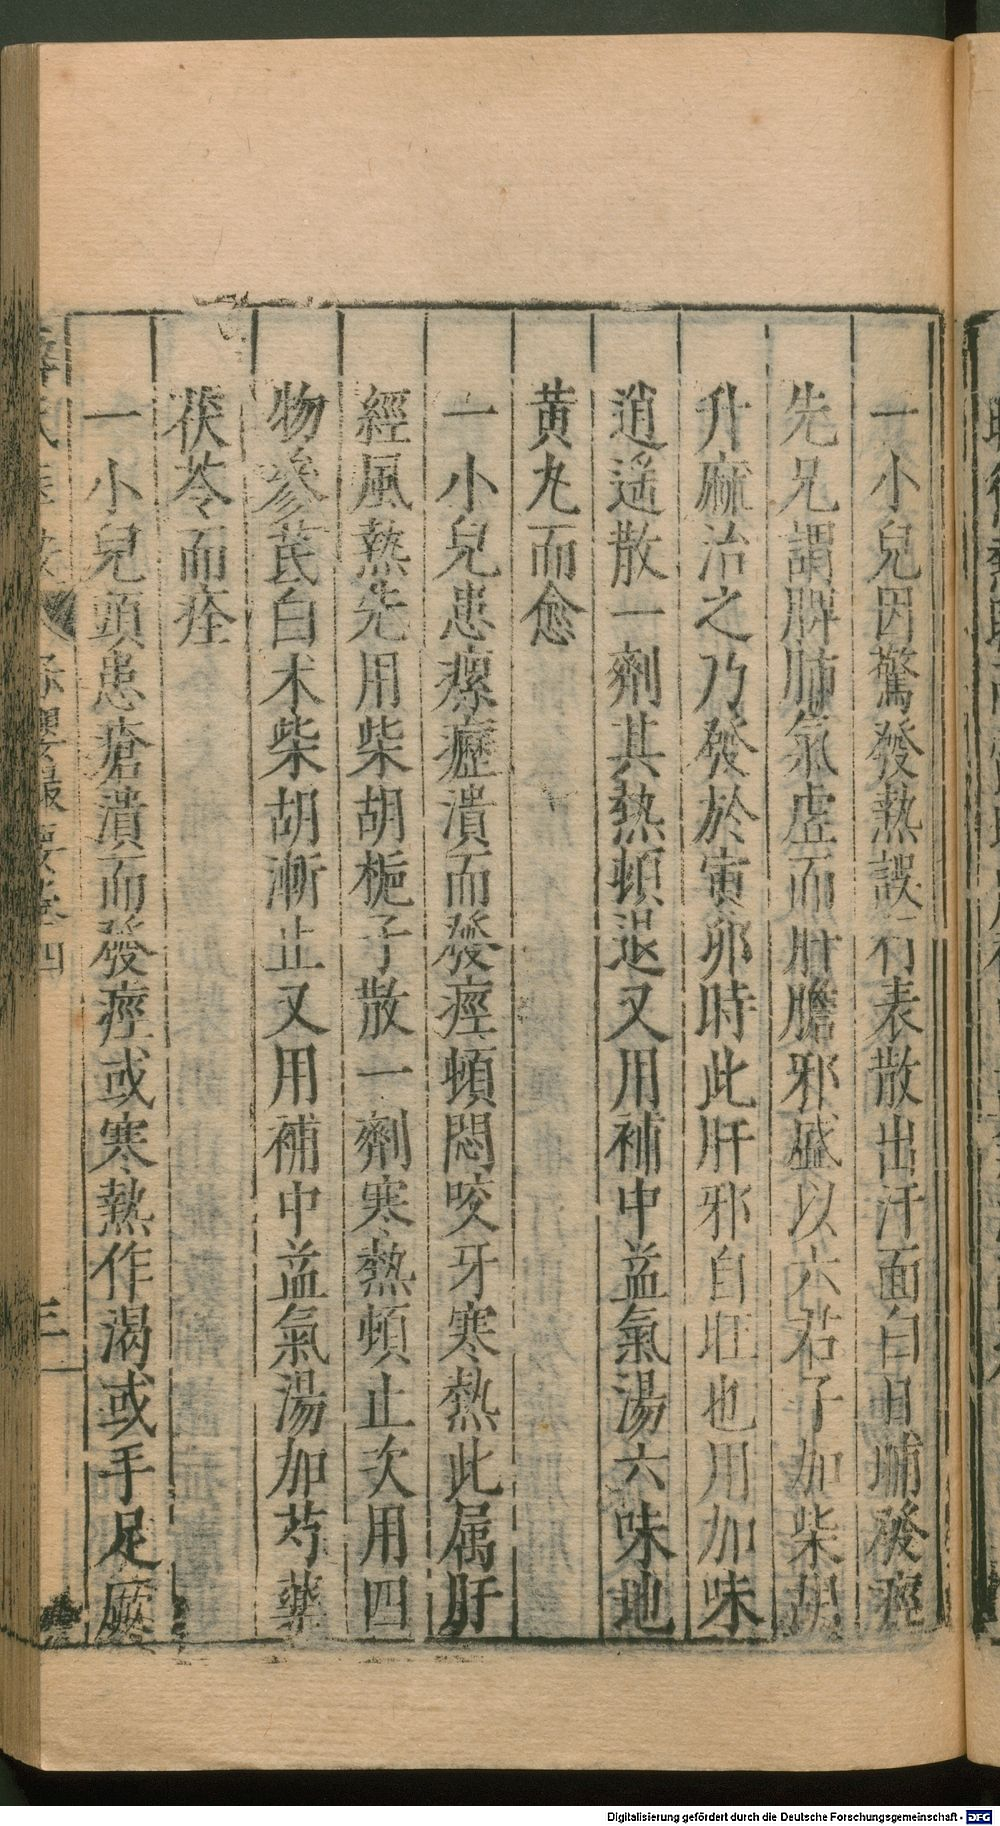 一小兒因驚發熱誤行表散出汗面白日晡發痙
先兄謂脾肺氣虛而肝膽邪盛以六君子加柴胡
升麻治之乃發於寅卯時此肝邪自旺也用加味
逍遙散一劑其熱頓退又用補中益氣湯六味地
黄丸而愈
一小兒患瘰癧潰而發痙頓悶咬牙寒熱此属肝
經風熱先用柴胡梔子散一劑寒熱頓止次用四
物參芪白术柴胡漸止又用補中益氣湯加芍藥
茯苓而痊
一小兒頭患瘡潰而發痙或寒熱作渴或手足厥
四
三
Digitalisierung gefördert durch die Deutsche Forschungsgemeinschaft - DFG